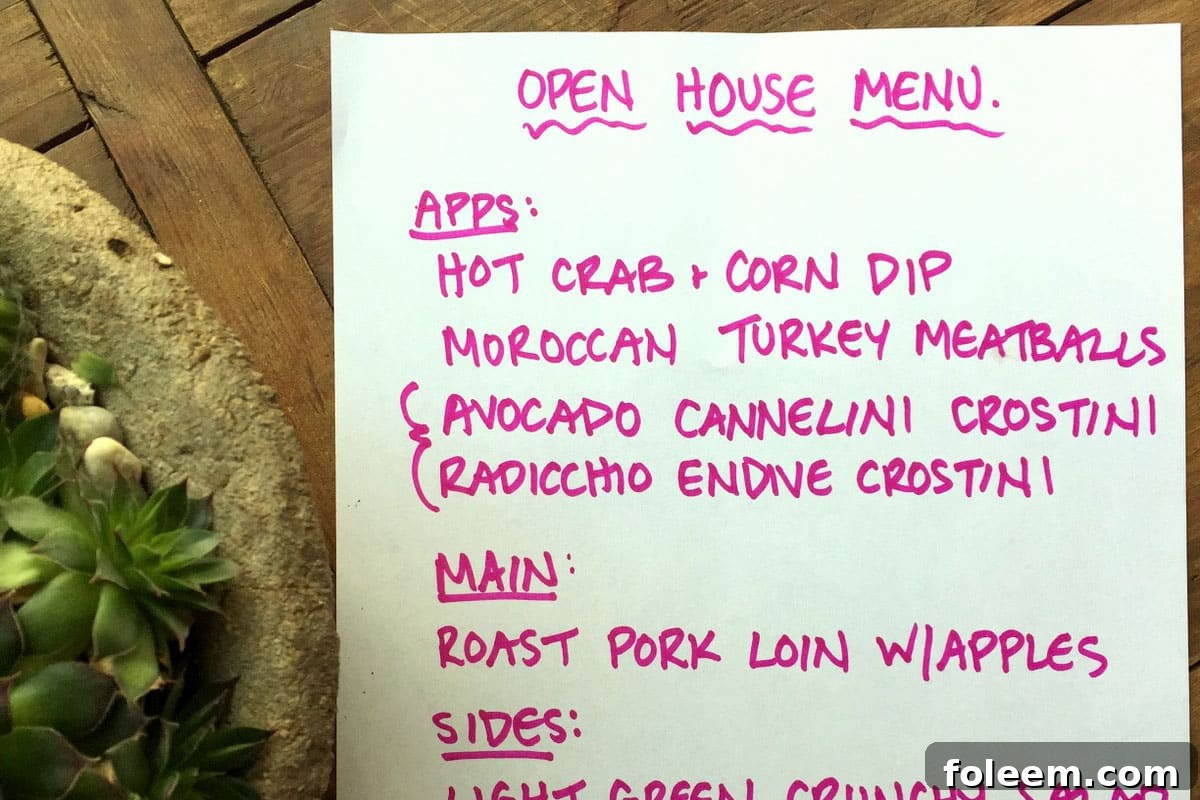 OPEN HOUSE MENU.
APPS:
HOT CRAB + CORN DIP
MOROCCAN TURKEY MEATBALLS
AVOCADO CANNELINI CROSTINI
RADICCHIO ENDIVE CROSTINI
MAIN:
ROAST PORK LOIN W/APPLES
SIDES:
LIGHT GREEN CRUNCHY SALAD
foleem.com